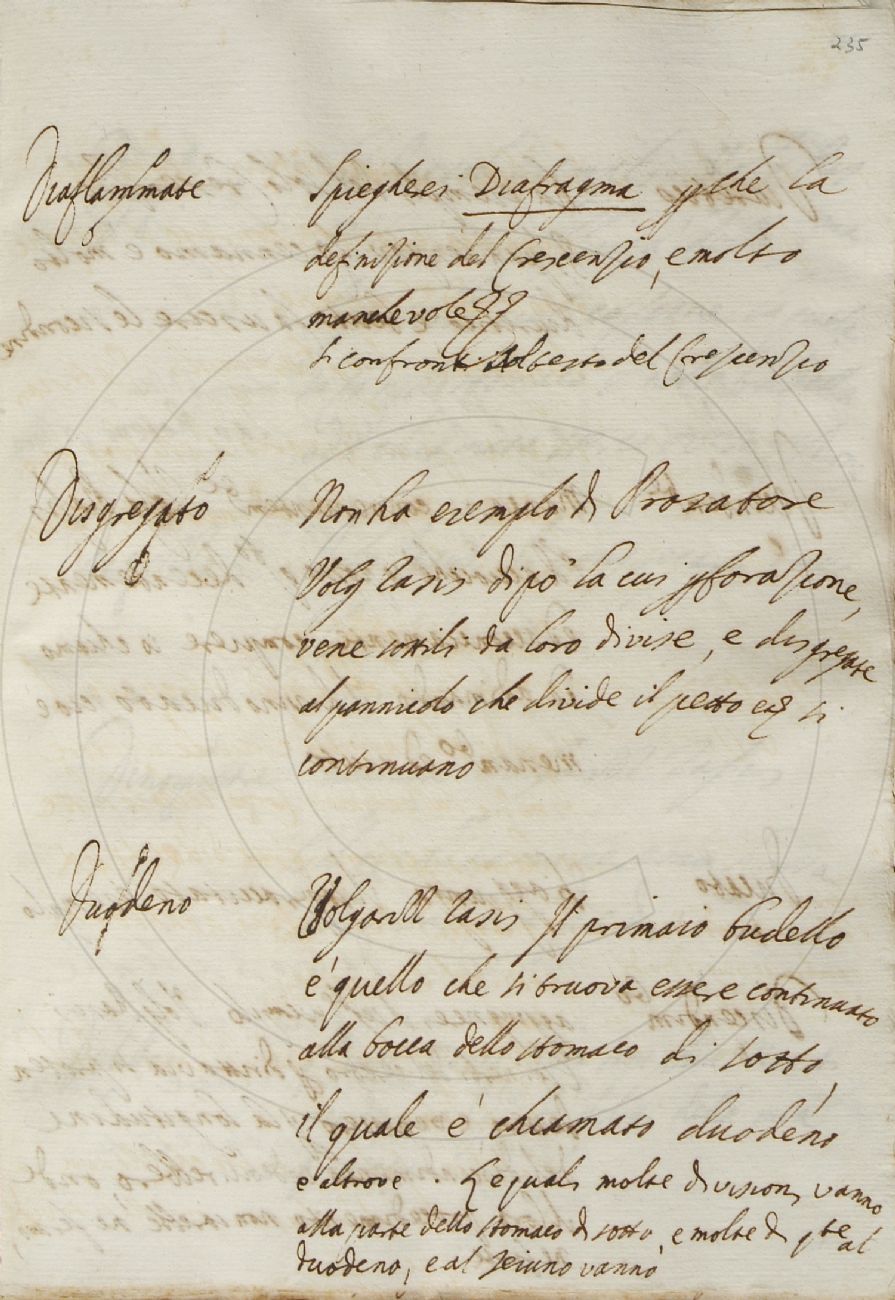 235
Diaflammate
Spieghesi Diafragma pche la
definizione del Crescenzio, e molto
manchevole
si confronti col testo del Crescenzio
Disgregato
Non ha esemplo di Prosatore
Volg Rasis dipo la cui pforazione,
vene sottili da loro divise, e disgregate
al pannicolo che divide il petto si
continuano
Duodeno
Volgarizz Rasis Il primaio budello
è quello che si truova essere continuato
alla bocca dello stomaco di sotto,
il quale è chiamato duodéno
e altrove. Le quali molte divisioni vanno
alla parte dello stomaco di sotto, e molte di qste al
duodeno, e al Jeiuno vanno